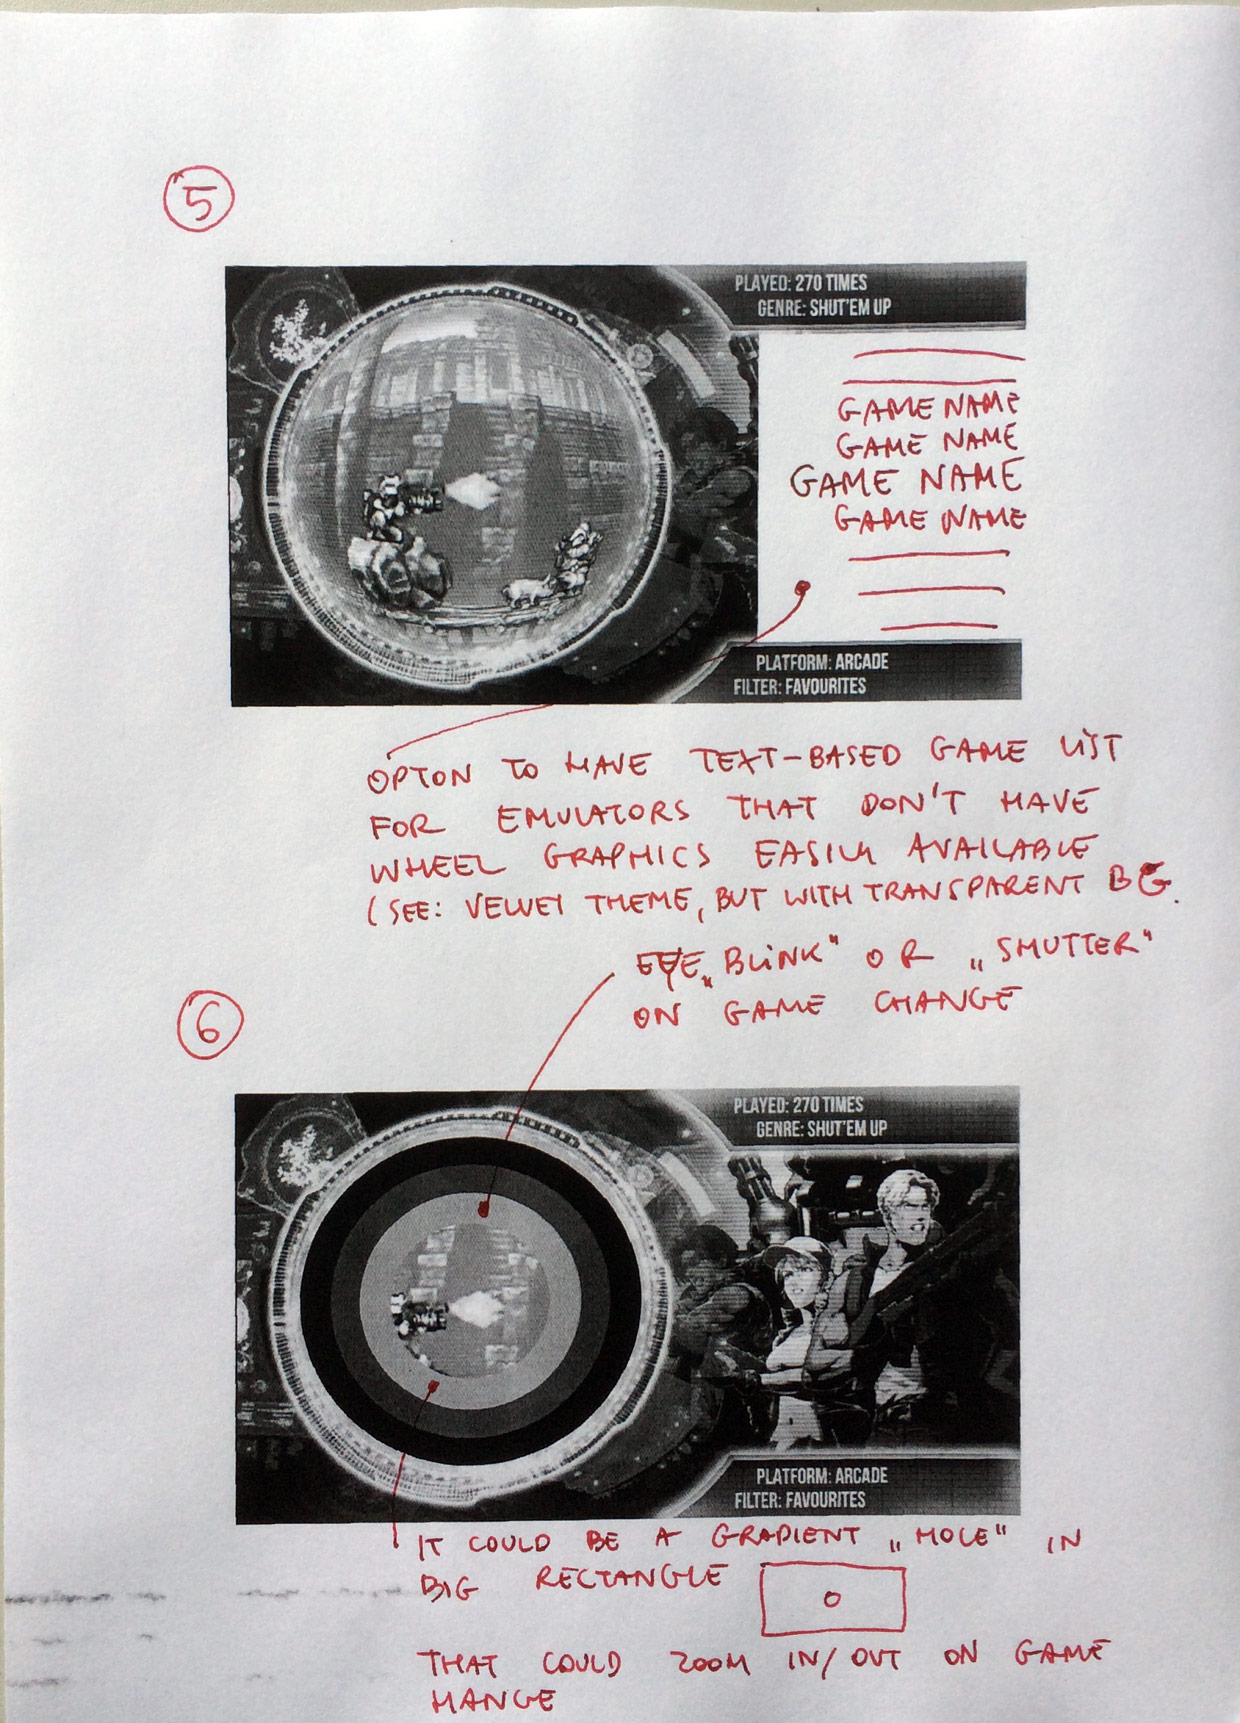 5
PLAYED: 270 TIMES
GENRE: SHUT'EM UP
GAME NAME
GAME NAME
GAME NAME
GAME NAME
PLATFORM: ARCADE
FILTER: FAVOURITES
OPTON TO HAVE TEXT-BASED GAME LIST
FOR EMULATORS THAT DON'T HAVE
WHEEL GRAPHICS EASILY AVAILABLE
(SEE: VELVET THEME, BUT WITH TRANSPARENT BG.
EYE „BLINK" OR „SHUTTER"
ON GAME CHANGE
6
PLAYED: 270 TIMES
GENRE: SHUT'EM UP
PLATFORM: ARCADE
FILTER: FAVOURITES
IT COULD BE A GRADIENT „HOLE" IN
BIG RECTANGLE
THAT COULD ZOOM IN/OUT ON GAME
HANGE